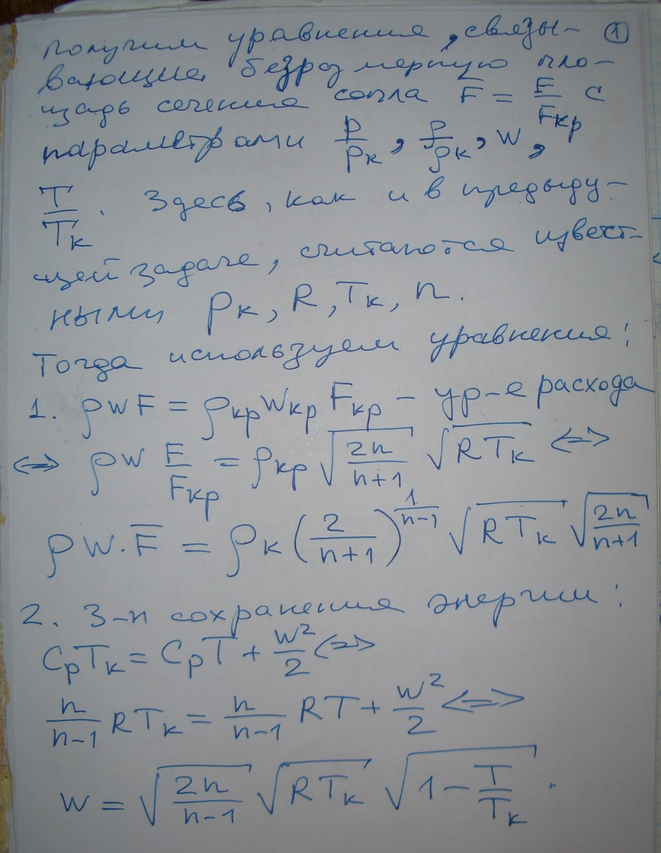 получим уравнения, связы- ①
вающие безразмерную пло-
щадь сечения сопла F̅ = F/Fкр с
параметрами p/pк, ρ/ρк, w,
T/Tк. Здесь, как и в предыду-
щей задаче, считаются извест-
ными pк, R, Tк, n.
Тогда используем уравнения:
1. ρwF = ρкр wкр Fкр – ур-е расхода
<=> ρw F/Fкр = ρкр √(2n/(n+1)) √(RTк) <=>
ρw·F̅ = ρк (2/(n+1))^(1/(n-1)) √(RTк) √(2n/(n+1))
2. З-н сохранения энергии:
CpTк = CpT + w²/2 <=>
n/(n-1) RTк = n/(n-1) RT + w²/2 <=>
w = √(2n/(n-1)) √(RTк) √(1 - T/Tк).